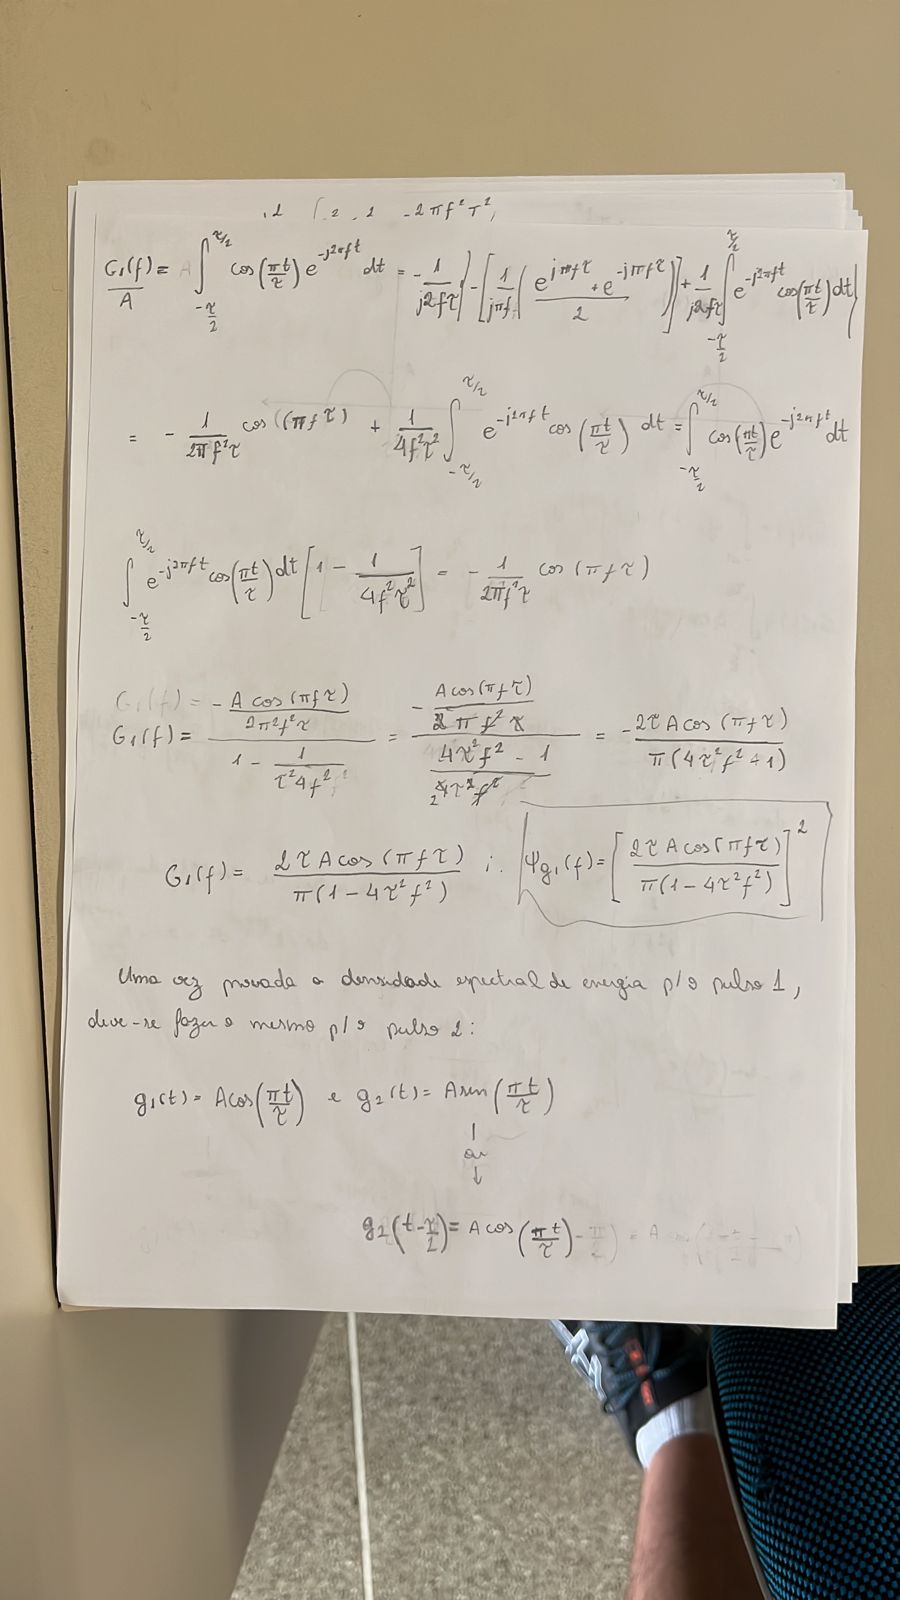 -2πf²τ²,
G₁(f)/A = ∫_{-τ/2}^{τ/2} cos(πt/τ) e^{-j2πft} dt = -1/(j2fτ) { -[1/(jπf) ( (e^{jπfτ} + e^{-jπfτ})/2 )] + 1/(j2fτ) ∫_{-τ/2}^{τ/2} e^{-j2πft} cos(πt/τ) dt }
= - 1/(2πf²τ) cos(πfτ) + 1/(4f²τ²) ∫_{-τ/2}^{τ/2} e^{-j2πft} cos(πt/τ) dt = ∫_{-τ/2}^{τ/2} cos(πt/τ) e^{-j2πft} dt
∫_{-τ/2}^{τ/2} e^{-j2πft} cos(πt/τ) dt [1 - 1/(4f²τ²)] = - 1/(2πf²τ) cos(πfτ)
G₁(f) =
G₁(f) = (-A cos(πfτ)/(2π²f²τ))/(1 - 1/(τ²4f²)) = (-A cos(πfτ)/(2πf²τ))/((4τ²f² - 1)/(4τ²f²)) = -2τA cos(πfτ)/(π(4τ²f²+1))
G₁(f) = 2τA cos(πfτ)/(π(1-4τ²f²)) ; Ψg₁(f) = [2τA cos(πfτ)/(π(1-4τ²f²))]²
Uma vez provada a densidade espectral de energia p/ o pulso 1,
deve-se fazer o mesmo p/ o pulso 2:
g₁(t) = A cos(πt/τ) e g₂(t) = A sen(πt/τ)
ou
↓
g₂(t-τ/2) = A cos(πt/τ - π/2) = A